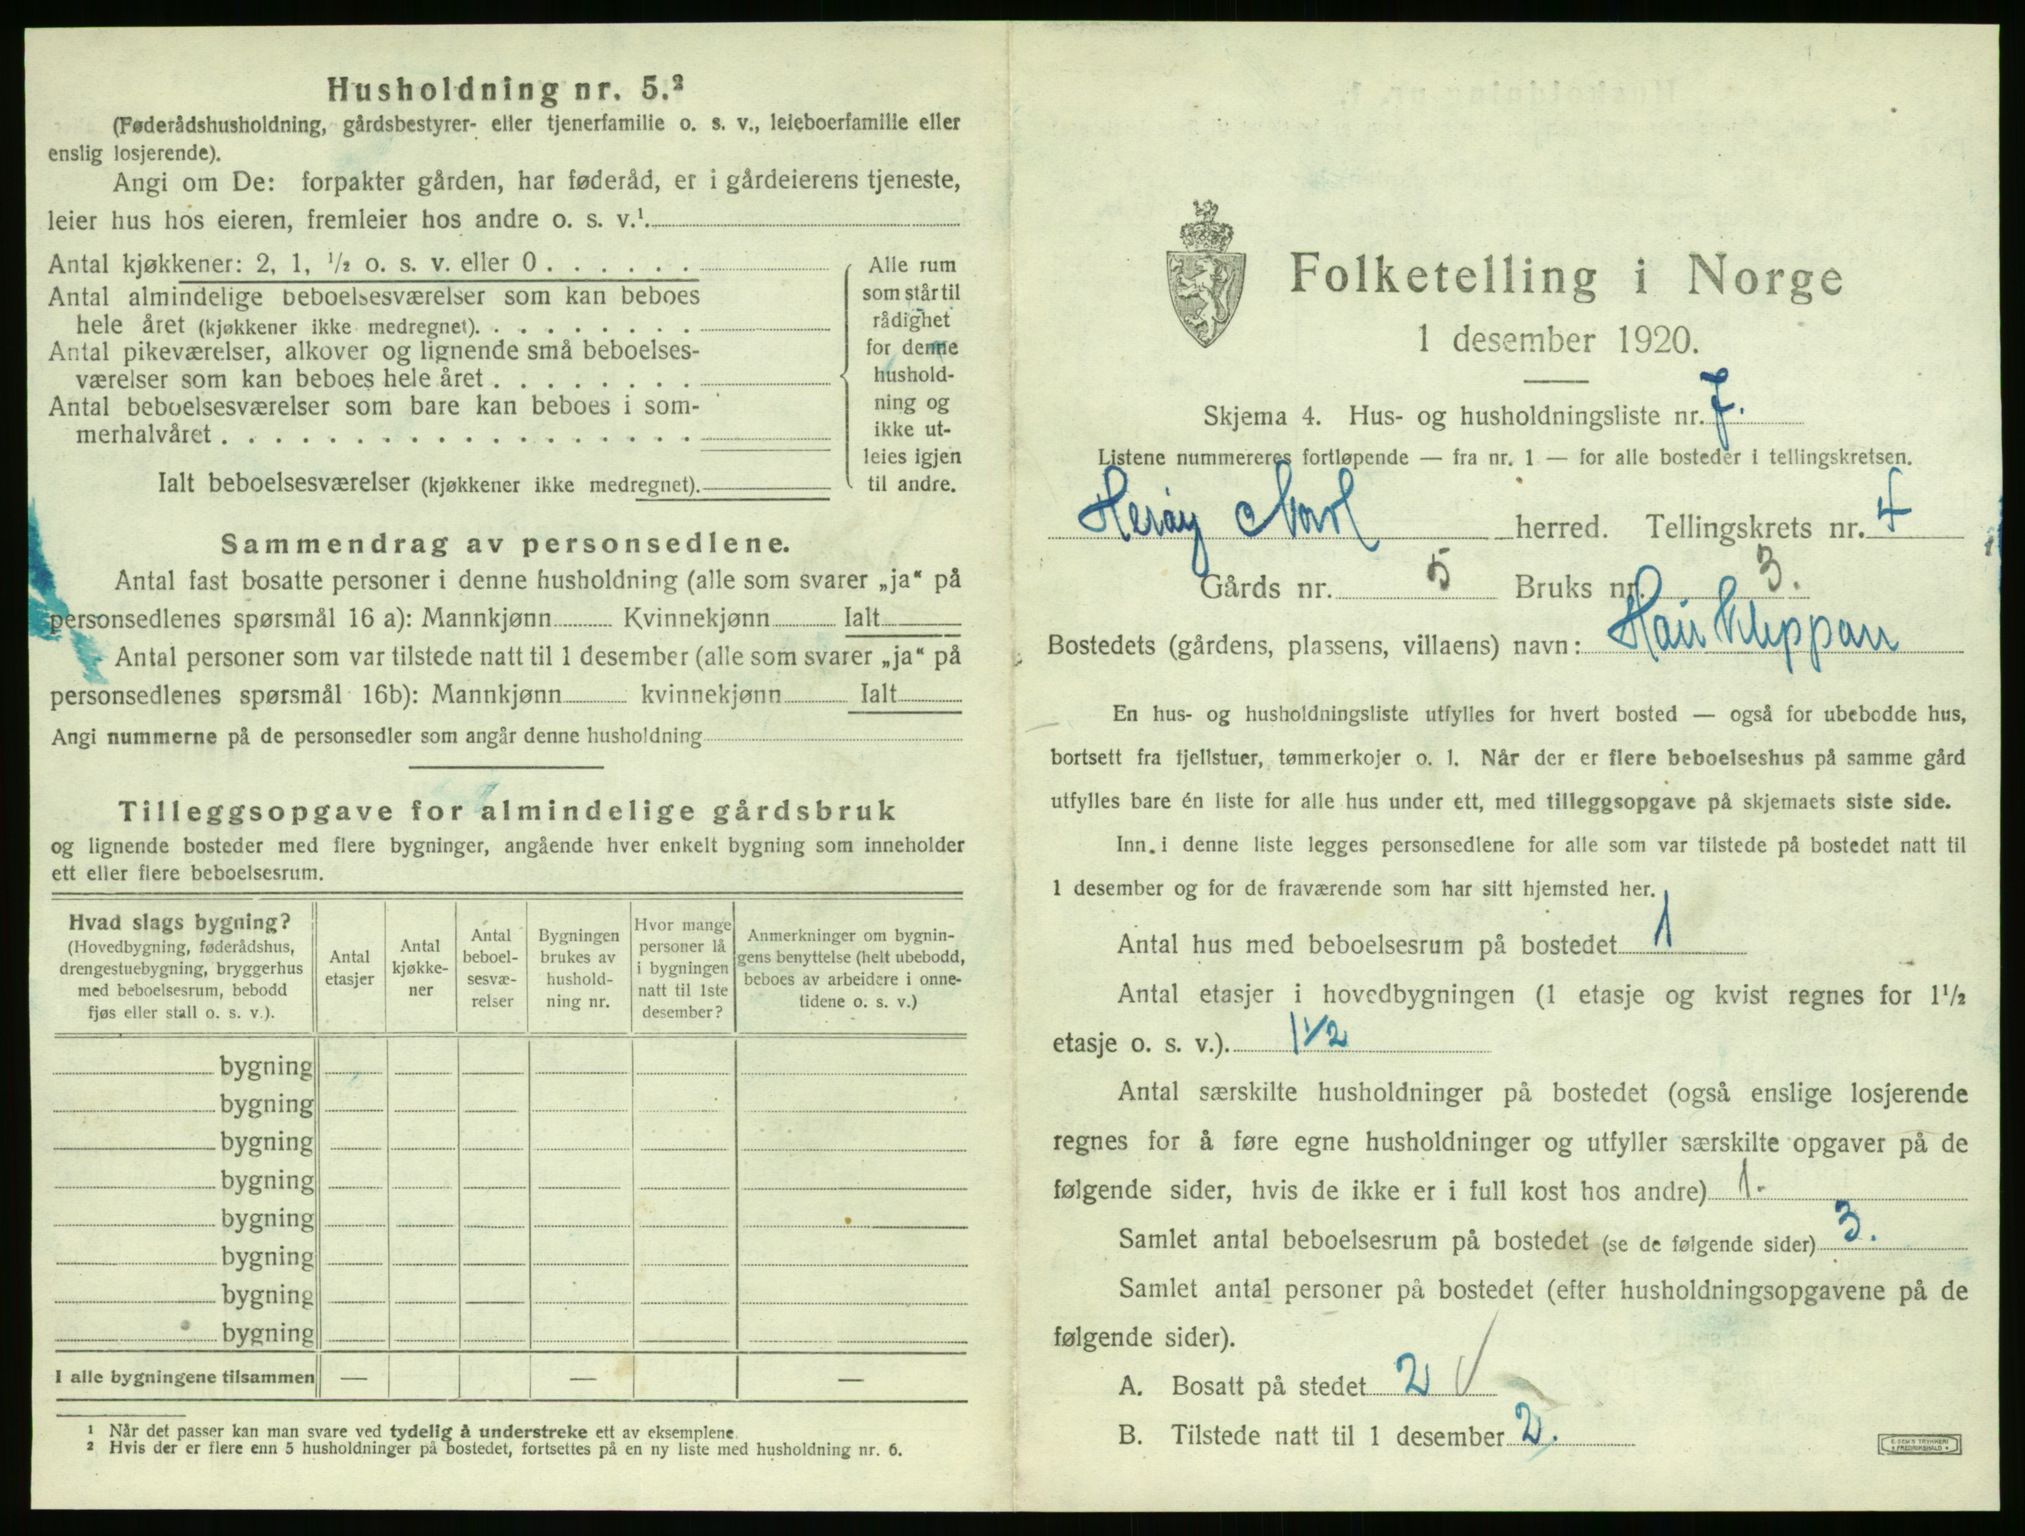 Husholdning nr. 5.²
(Føderådshusholdning, gårdsbestyrer- eller tjenerfamilie o. s. v., leieboerfamilie eller
enslig losjerende).
Angi om De: forpakter gården, har føderåd, er i gårdeierens tjeneste,
leier hus hos eieren, fremleier hos andre o. s. v.¹
Antal kjøkkener: 2, 1, ½ o. s. v. eller 0
Antal almindelige beboelsesværelser som kan beboes
hele året (kjøkkener ikke medregnet)
Antal pikeværelser, alkover og lignende små beboelses-
værelser som kan beboes hele året
Antal beboelsesværelser som bare kan beboes i som-
merhalvåret
Ialt beboelsesværelser (kjøkkener ikke medregnet).
Alle rum
som står til
rådighet
for denne
hushold-
ning og
ikke ut-
leies igjen
til andre.
Sammendrag av personsedlene.
Antal fast bosatte personer i denne husholdning (alle som svarer „ja“ på
personsedlenes spørsmål 16 a): Mannkjønn Kvinnekjønn Ialt
Antal personer som var tilstede natt til 1 desember (alle som svarer „ja“ på
personsedlenes spørsmål 16b): Mannkjønn kvinnekjønn Ialt
Angi nummerne på de personsedler som angår denne husholdning
Tilleggsopgave for almindelige gårdsbruk
og lignende bosteder med flere bygninger, angående hver enkelt bygning som inneholder
ett eller flere beboelsesrum.
Hvad slags bygning?
(Hovedbygning, føderådshus,
drengestuebygning, bryggerhus
med beboelsesrum, bebodd
fjøs eller stall o. s. v.).
Antal
etasjer
Antal
kjøkke-
ner
Antal
beboel-
sesvæ-
relser
Bygningen
brukes av
hushold-
ning nr.
Hvor mange
personer lå
i bygningen
natt til 1ste
desember?
Anmerkninger om bygnin-
gens benyttelse (helt ubebodd,
beboes av arbeidere i onne-
tidene o. s. v.)
bygning
bygning
bygning
bygning
bygning
bygning
bygning
bygning
I alle bygningene tilsammen — — —
¹ Når det passer kan man svare ved tydelig å understreke ett av eksemplene.
² Hvis der er flere enn 5 husholdninger på bostedet, fortsettes på en ny liste med husholdning nr. 6.
Folketelling i Norge
1 desember 1920.
Skjema 4. Hus- og husholdningsliste nr. 7.
Listene nummereres fortløpende — fra nr. 1 — for alle bosteder i tellingskretsen.
Herøy herred. Tellingskrets nr. 4
Gårds nr. 5 Bruks nr. 3.
Bostedets (gårdens, plassens, villaens) navn: Kleppan
En hus- og husholdningsliste utfylles for hvert bosted — også for ubebodde hus,
bortsett fra fjellstuer, tømmerkojer o. l. Når der er flere beboelseshus på samme gård
utfylles bare én liste for alle hus under ett, med tilleggsopgave på skjemaets siste side.
Inn. i denne liste legges personsedlene for alle som var tilstede på bostedet natt til
1 desember og for de fraværende som har sitt hjemsted her.
Antal hus med beboelsesrum på bostedet 1
Antal etasjer i hovedbygningen (1 etasje og kvist regnes for 1½
etasje o. s. v.). 1½
Antal særskilte husholdninger på bostedet (også enslige losjerende
regnes for å føre egne husholdninger og utfyller særskilte opgaver på de
følgende sider, hvis de ikke er i full kost hos andre) 1.
Samlet antal beboelsesrum på bostedet (se de følgende sider) 3.
Samlet antal personer på bostedet (efter husholdningsopgavene på de
følgende sider).
A. Bosatt på stedet 2
B. Tilstede natt til 1 desember 2.
E. SEM'S TRYKKERI
FREDRIKSHALD